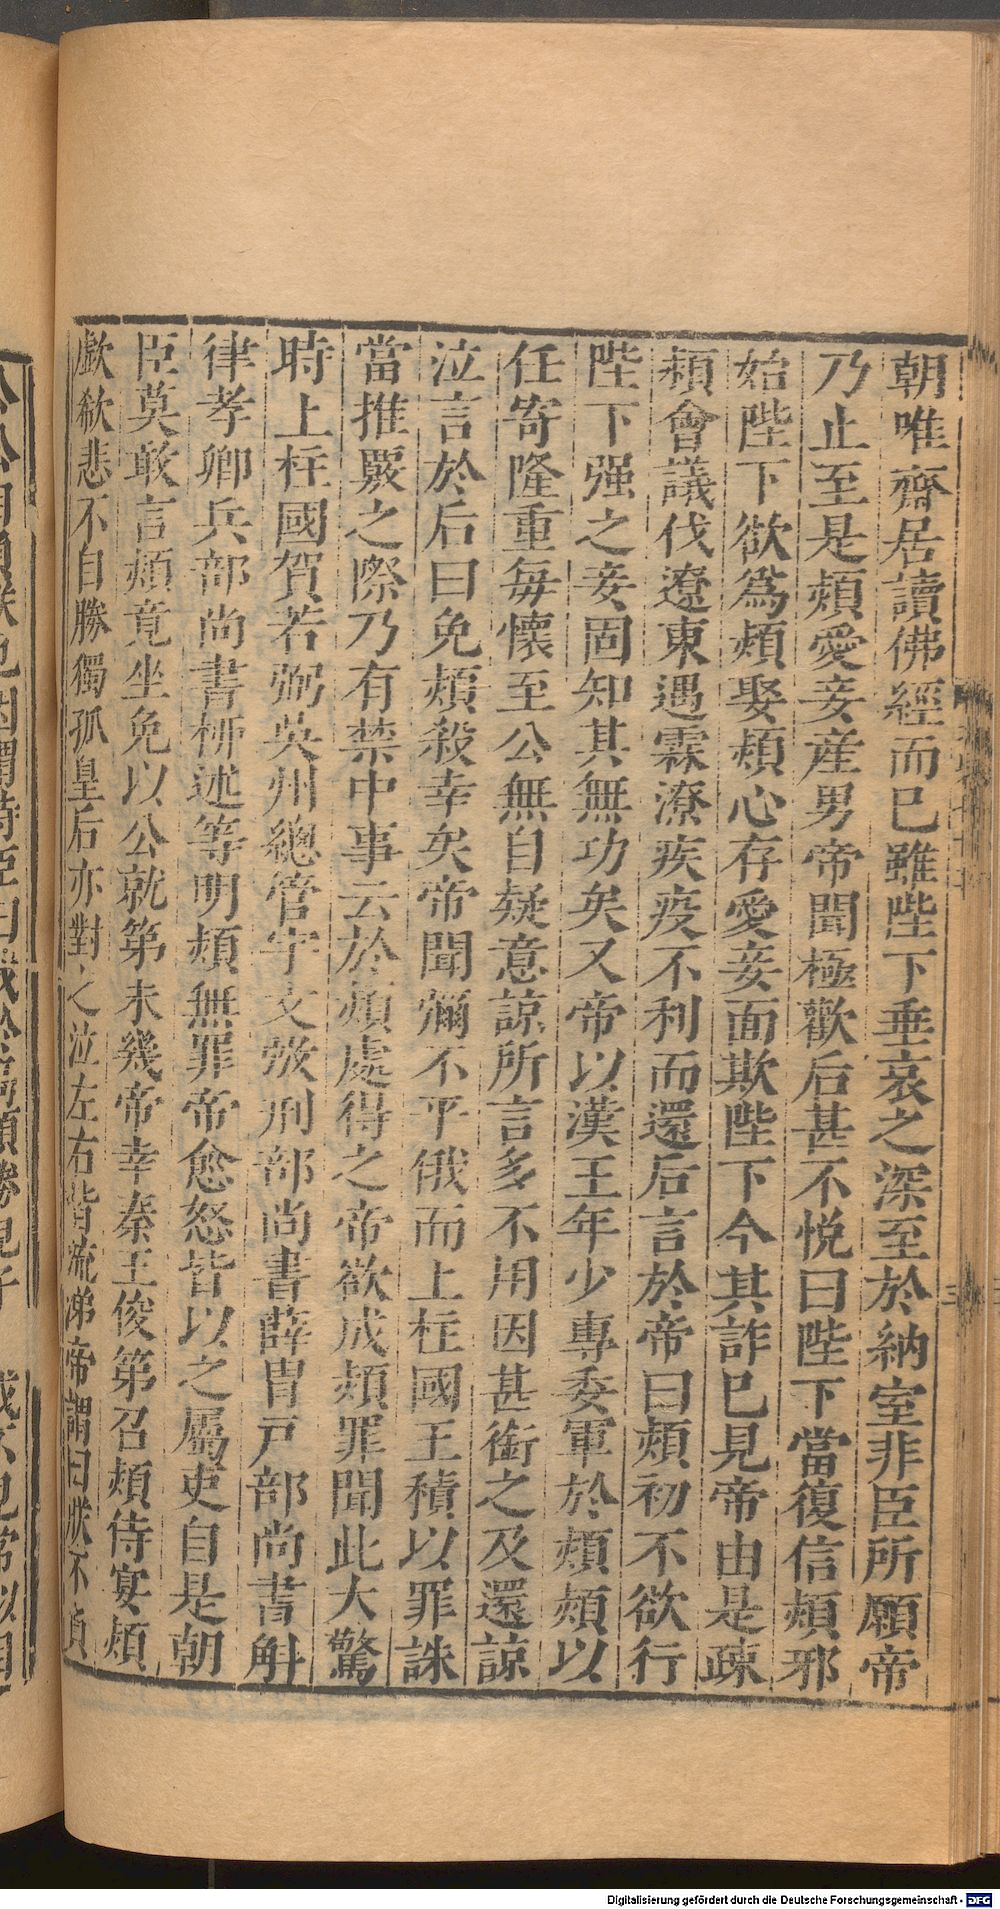 朝唯齋居讀佛經而已雖陛下垂哀之深至於納室非臣所願帝
乃止至是熲愛妾產男帝聞極歡后甚不悅曰陛下當復信熲邪
始陛下欲爲熲娶熲心存愛妾面欺陛下今其詐已見帝由是疎
熲會議伐遼東遇霖潦疾疫不利而還后言於帝曰熲初不欲行
陛下强之妾固知其無功矣又帝以漢王年少專委軍於熲熲以
任寄隆重每懷至公無自疑意諒所言多不用因甚銜之及還諒
泣言於后曰免熲殺幸矣帝聞彌不平俄而上柱國王積以罪誅
當推覈之際乃有禁中事云於熲處得之帝欲成熲罪聞此大驚
時上柱國賀若弼英州總管宇文㢸刑部尚書薛胄戶部尚書斛
律孝卿兵部尚書柳述等明熲無罪帝愈怒皆以之屬吏自是朝
臣莫敢言熲竟坐免以公就第未幾帝幸秦王俊第召熲侍宴熲
歔欷悲不自勝獨孤皇后亦對之泣左右皆流涕帝謂曰朕不負
Digitalisierung gefördert durch die Deutsche Forschungsgemeinschaft - DFG